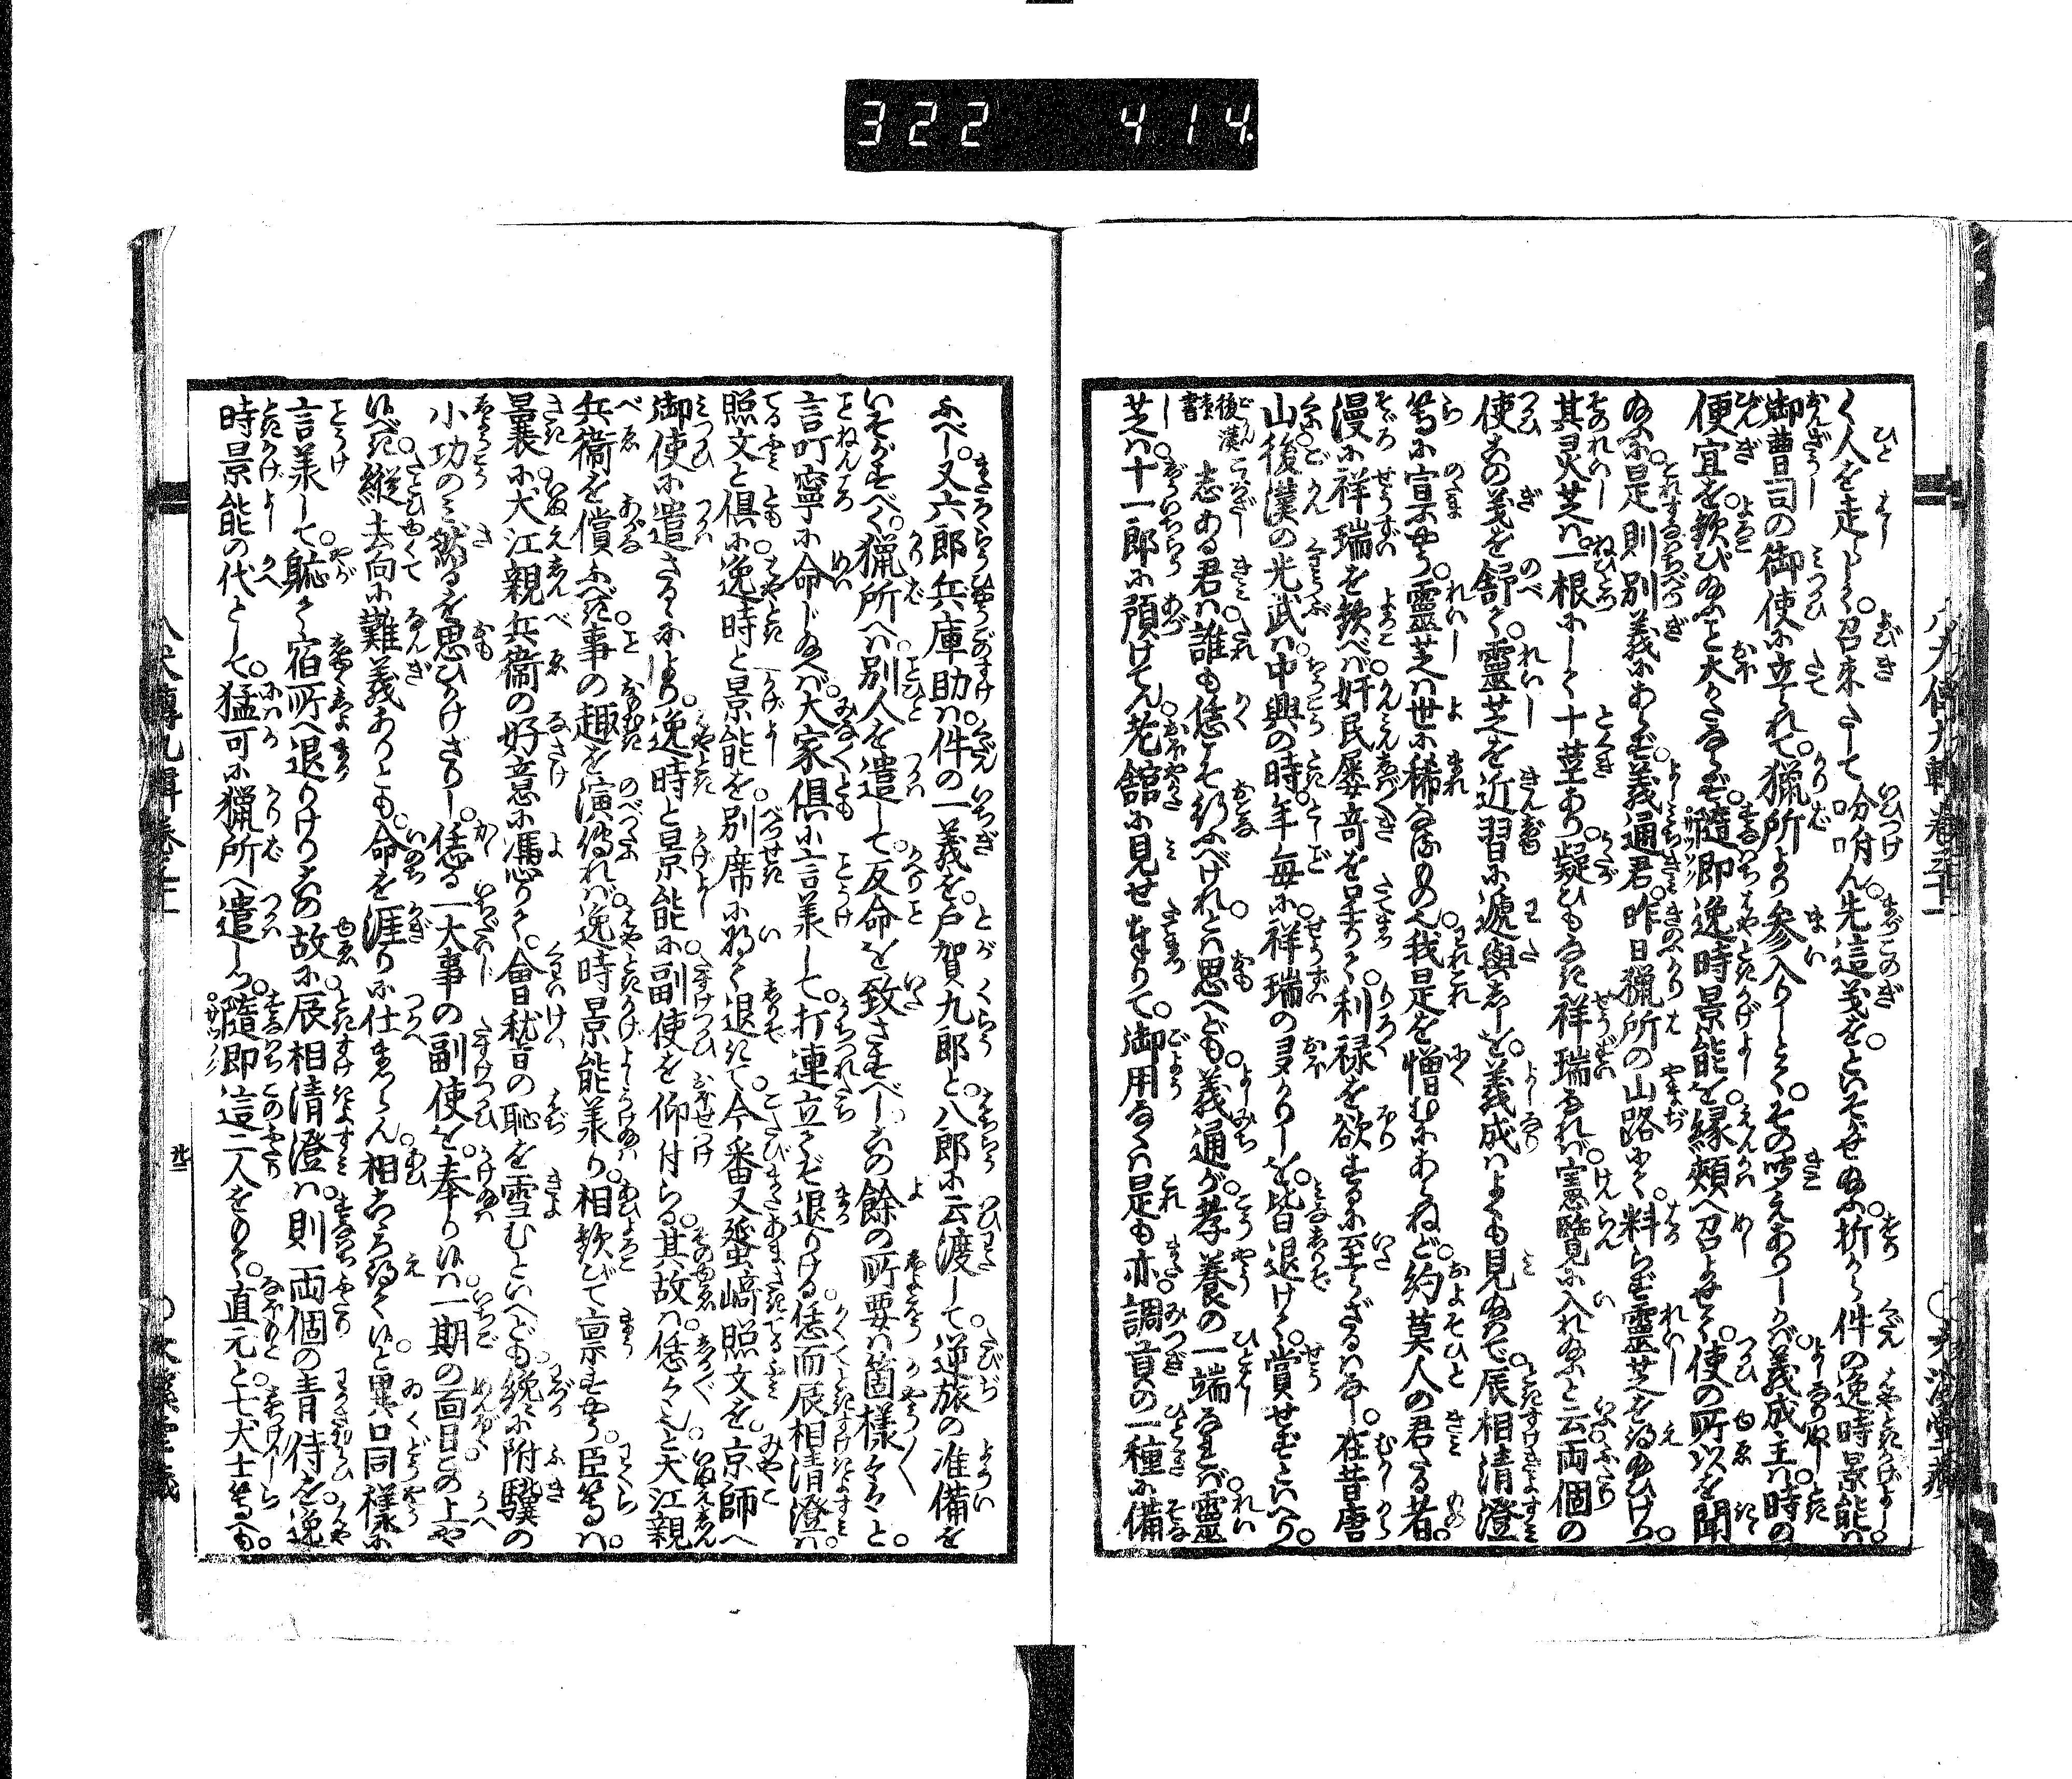 322 414.
く人を走らして召來さして吩咐ん先這義をといそがせ給ふ折から件の逸時景能は
御曹司の御使に立られて猟所より参入りしとてその聞えありしかば義成主は時の
便宜を歓び給ふこと大かたならず隨即逸時景能を縁頬へ召よせて使の所以を聞
給ふに是則別義にあらず義通君昨日猟所の山路にて料らず靈芝を得給ひけり
其灵芝は一根にして十莖あり疑ひもなき祥瑞なれば憲覧に入れ給ふと云両個の
使者の義を舒て靈芝を近習に遞與ししを義成はよくも見給はで辰相清澄
等に宣ふやう靈芝は世に稀なるものなれ我是を憎むにあらねど約莫人の君たる者
漫に祥瑞を歓べば奸民屡奇を呈りて利禄を欲するに至らざるはなし在昔唐
山後漢の光武は中興の時年毎に祥瑞の多かりしを皆退けて賞せずといへり
後漢書 志ある君は誰も恁こそ行ふべけれとは思へども義通が孝養の一端なれば靈
芝は十一郎に預けてん老舘に見せまゐりて御用なくは是も亦調貢の一種に備
ふべし又六郎兵庫助は件の一義を戸賀九郎と八郎に云渡して逆旅の准備を
いそがすべく猟所へは別人を遣して反命を致さすべしその餘の所要は箇様々々と
言叮寧に命じ給へば大家倶に言承して打連立てぞ退りける恁而辰相清澄は
照文と倶に逸時と景能を別席に将て退きて今番又蜑崎照文を京師へ
御使に遣さるゝにより逸時と景能に副使を仰付らる其故は恁々と犬江親
兵衛を償ふべき事の趣を演傳れば逸時景能承り相歓びて稟すやう臣等は
曩に犬江親兵衛の好意に馮りて會稽の恥を雪むといへども纔に附驥の
小功のみ然るを思ひがけざりし恁る一大事の副使を奉り候は一期の面目この上や
候べき縦去向に難義ありとも命を涯りに仕まつらん相こゝろ得て候と異口同様に
言承して軈て宿所へ退りけりこの故に辰相清澄は則両個の青侍を逸
時景能の代として猛可に猟所へ遣しつ隨即這二人をもて直元と七犬士等へも